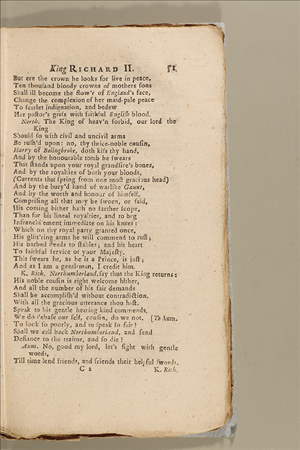 King RICHARD II. 51
But ere the crown he looks for live in peace,
Ten thousand bloody crowns of mothers sons
Shall ill become the flow'r of England's face,
Change the complexion of her maid-pale peace
To scarlet indignation, and bedew
Her pastor's grass with faithful English blood.
North. The King of heav'n forbid, our lord the
King
Should so with civil and uncivil arms
Be rush'd upon: no, thy thrice-noble cousin,
Harry of Bolingbroke, doth kiss thy hand,
And by the honourable tomb he swears
That stands upon your royal grandsire's bones,
And by the royalties of both your bloods,
(Currents that spring from one most gracious head)
And by the bury'd hand of warlike Gaunt,
And by the worth and honour of himself,
Comprising all that may be sworn, or said,
His coming hither hath no farther scope,
Than for his lineal royalties, and to beg
Infranchisement immediate on his knees:
Which on thy royal party granted once,
His glitt'ring arms he will commend to rust;
His barbed steeds to stables; and his heart
To faithful service of your Majesty.
This swears he, as he is a Prince, is just;
And as I am a gentleman, I credit him.
K. Rich. Northumberland, say thus the King returns:
His noble cousin is right welcome hither,
And all the number of his fair demands
Shall be accomplish'd without contradiction.
With all the gracious utterance thou hast,
Speak to his gentle hearing kind commends.
We do debase our self, cousin, do we not, [To Aum.
To look so poorly, and to speak so fair?
Shall we call back Northumberland, and send
Defiance to the traitor, and so die?
Aum. No, good my lord, let's fight with gentle
words,
Till time lend friends, and friends their helpful swords.
C 2 K. Rich.